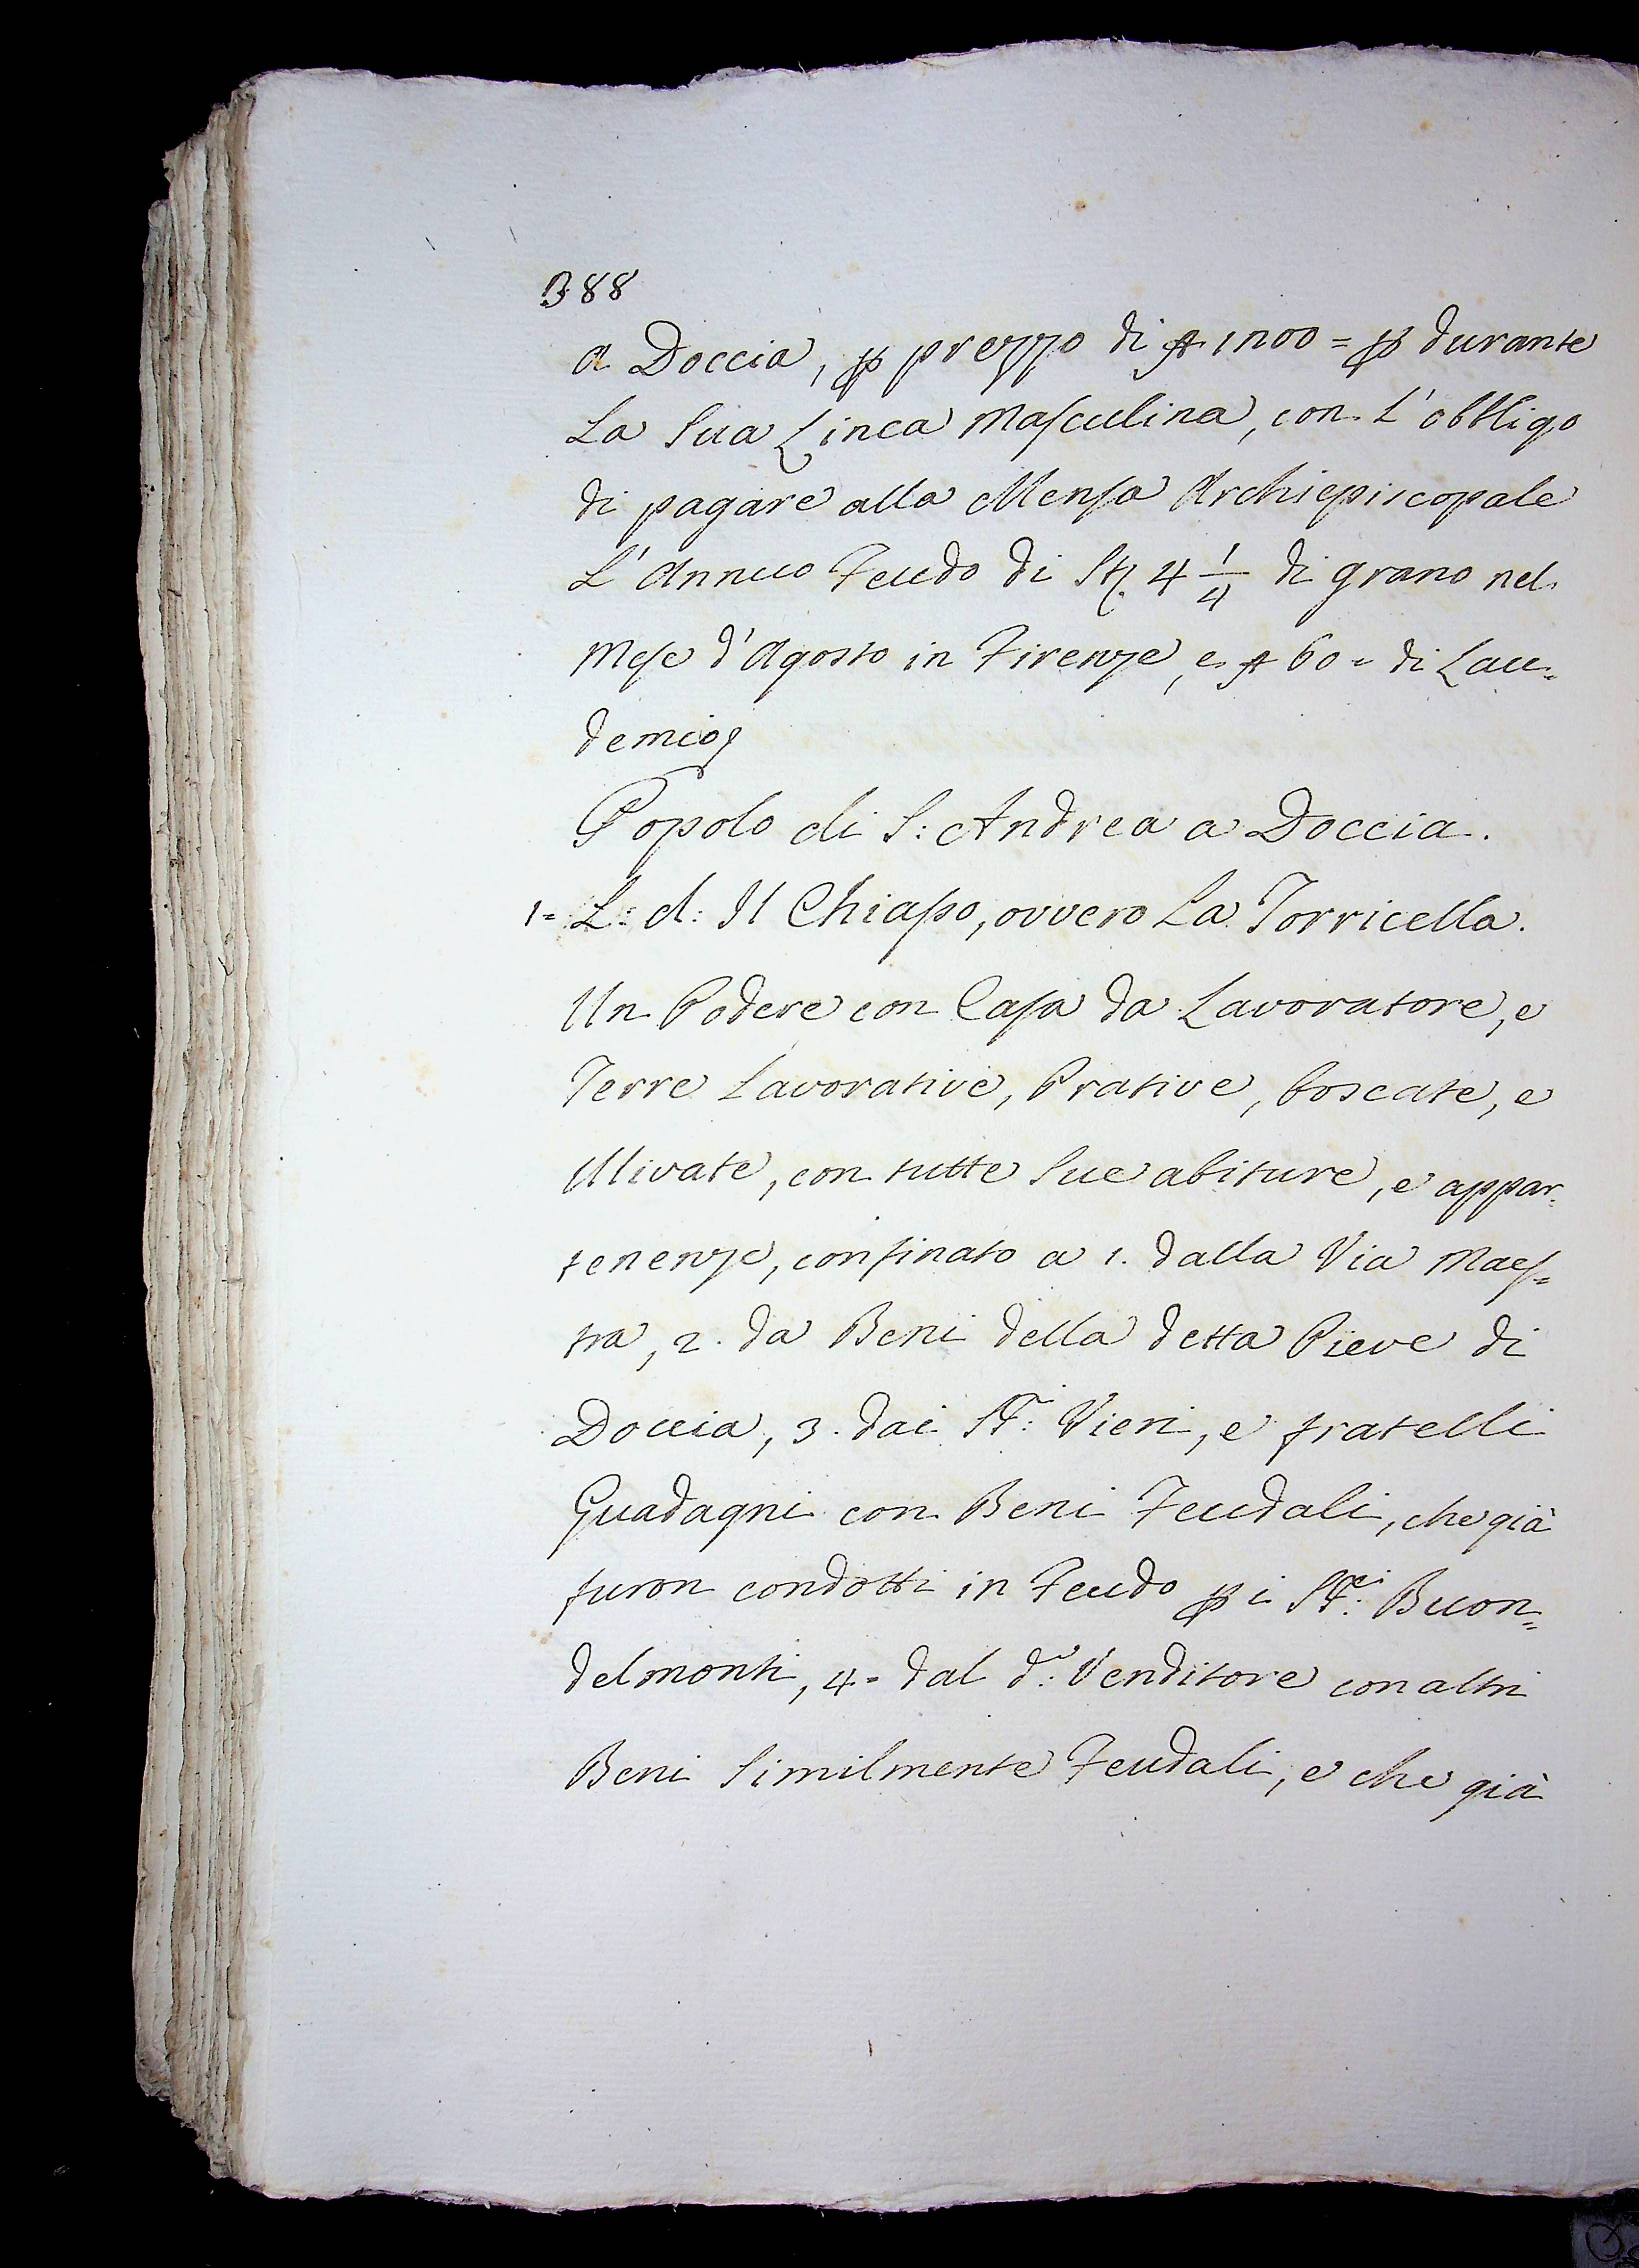 388
a Doccia, ꝑ prezzo di ₰ 1200 = ꝑ durante
La Sua Linea Masculina, con L'obbligo
di pagare alla Mensa Archiepiscopale
L'Annuo Feudo di St. 4 1/4 di grano nel
Mese d'Agosto in Firenze, e ₰ 60 = di Lau=
demio
Popolo di S: Andrea a Doccia.
1= L: d: Il Chiasso, ovvero La Torricella.
Un Podere con Casa da Lavoratore, e
Terre Lavorative, Prative, boscate, e
Ulivate, con tutte Sue abiture, e appar=
tenenze, confinato a 1. dalla Via Maes=
tra, 2. da Beni della detta Pieve di
Doccia, 3. dai SS.ri: Vieri, e fratelli
Guadagni con Beni Feudali, che già
furon condotti in Feudo ꝑ i SS.ri: Buon=
delmonti, 4= dal d.o: Venditore con altri
Beni Similmente Feudali, e che già